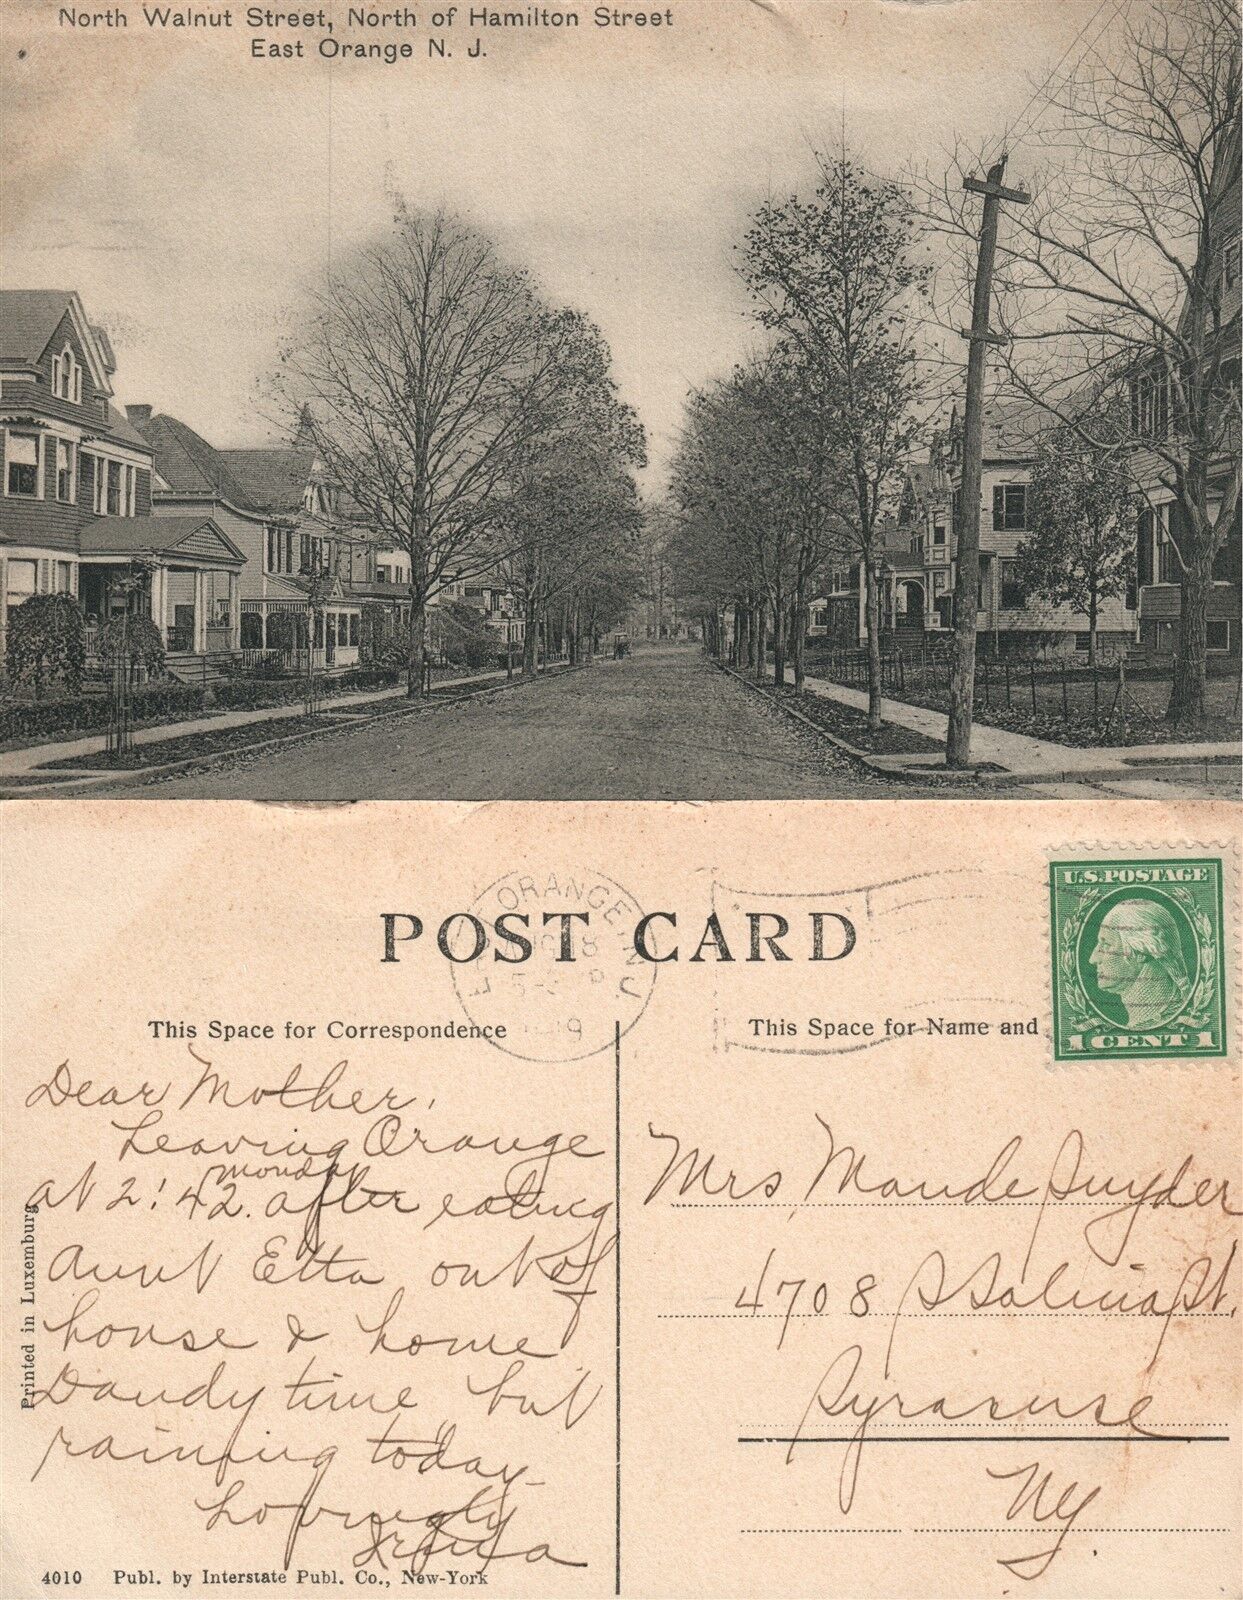 North Walnut Street, North of Hamilton Street
East Orange N. J.
POST CARD
EAST ORANGE, N.J.
AUG 18
This Space for Correspondence
This Space for Name and
U.S. POSTAGE
1 CENT 1
Dear Mother,
Leaving Orange
at 2:42. Monday after eating
Aunt Etta out of
house & home
Dandy time but
raining today.
Lovingly
Mrs, Maude Snyder
4708 S Salina St.
Syracuse
NY.
Printed in Luxemburg
4010 Publ. by Interstate Publ. Co., New-York